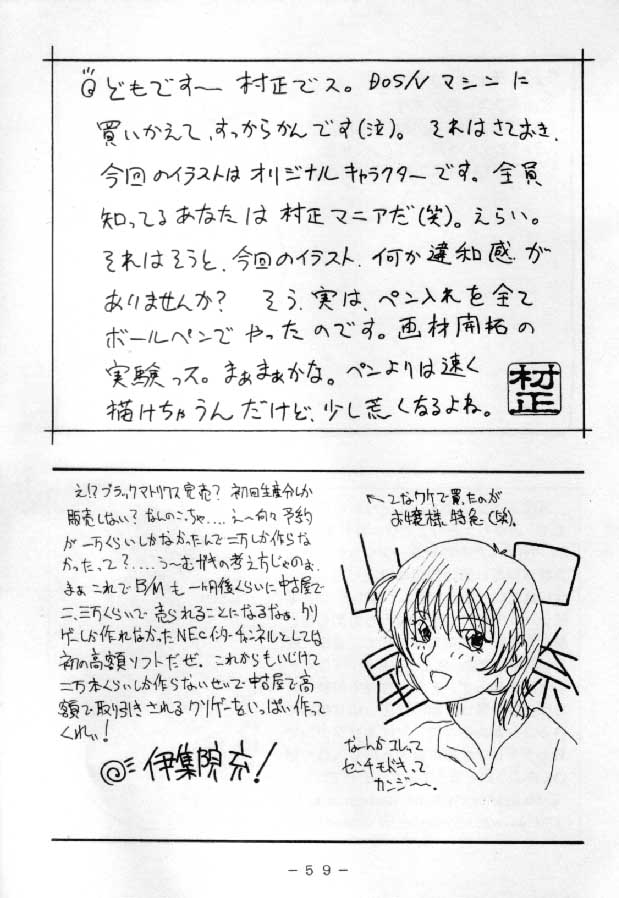 どもです〜 村正でス。 DOS/V マシンに
買いかえて、すっからかんです(泣)。 それはさておき、
今回のイラストは オリジナルキャラクターです。 全員
知ってるあなたは 村正マニアだ(笑)。えらい。
それはそうと、今回のイラスト、何か違和感が
ありませんか? そう、実は、ペン入れを全て
ボールペンで やったのです。画材開拓の
実験っス。まぁまぁかな。ペンよりは速く
描けちゃうんだけど、少し荒くなるよね。
村正
え!?ブラックマトリクス完売? 初回生産分しか
販売しない? なんのこっちゃ‥‥え〜何々予約
が一万くらいしかなかったんで二万しか作らな
かったって?‥‥う〜むガキの考え方じゃのぉ、
まぁこれでB/Mも一ヶ月後くらいに中古屋で
二、三万くらいで売られることになるなぁ、クソ
ゲーしか作れなかったNECインターチャンネルとしては
初の高額ソフトだぜ。これからもいじけて
二万本くらいしか作らないせいで中古屋で高
額で取り引きされるクソゲーをいっぱい作って
くれぃ!
伊集院 !
←てなワケで買ったのが
お嬢様特急(笑)。
なーんかコレって
センチモドキって
カンジ〜〜。
－５９－